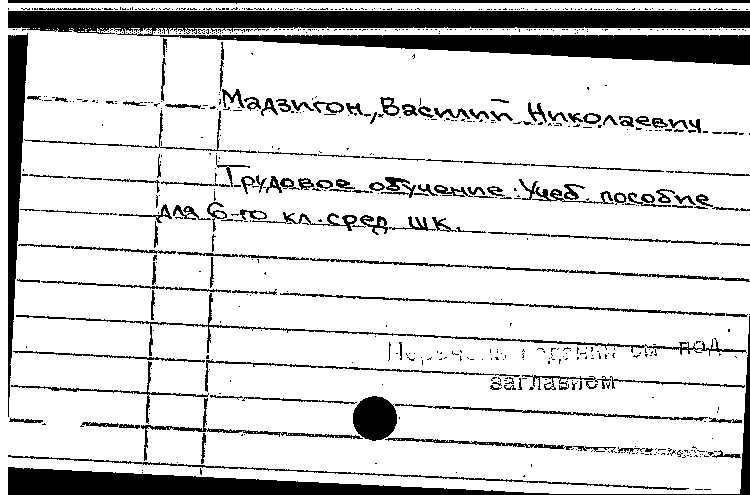 Мадзигон, Василий Николаевич
Трудовое обучение. Учеб. пособие
для 6-го кл. сред. шк.
Перечень изданий см. под
заглавием